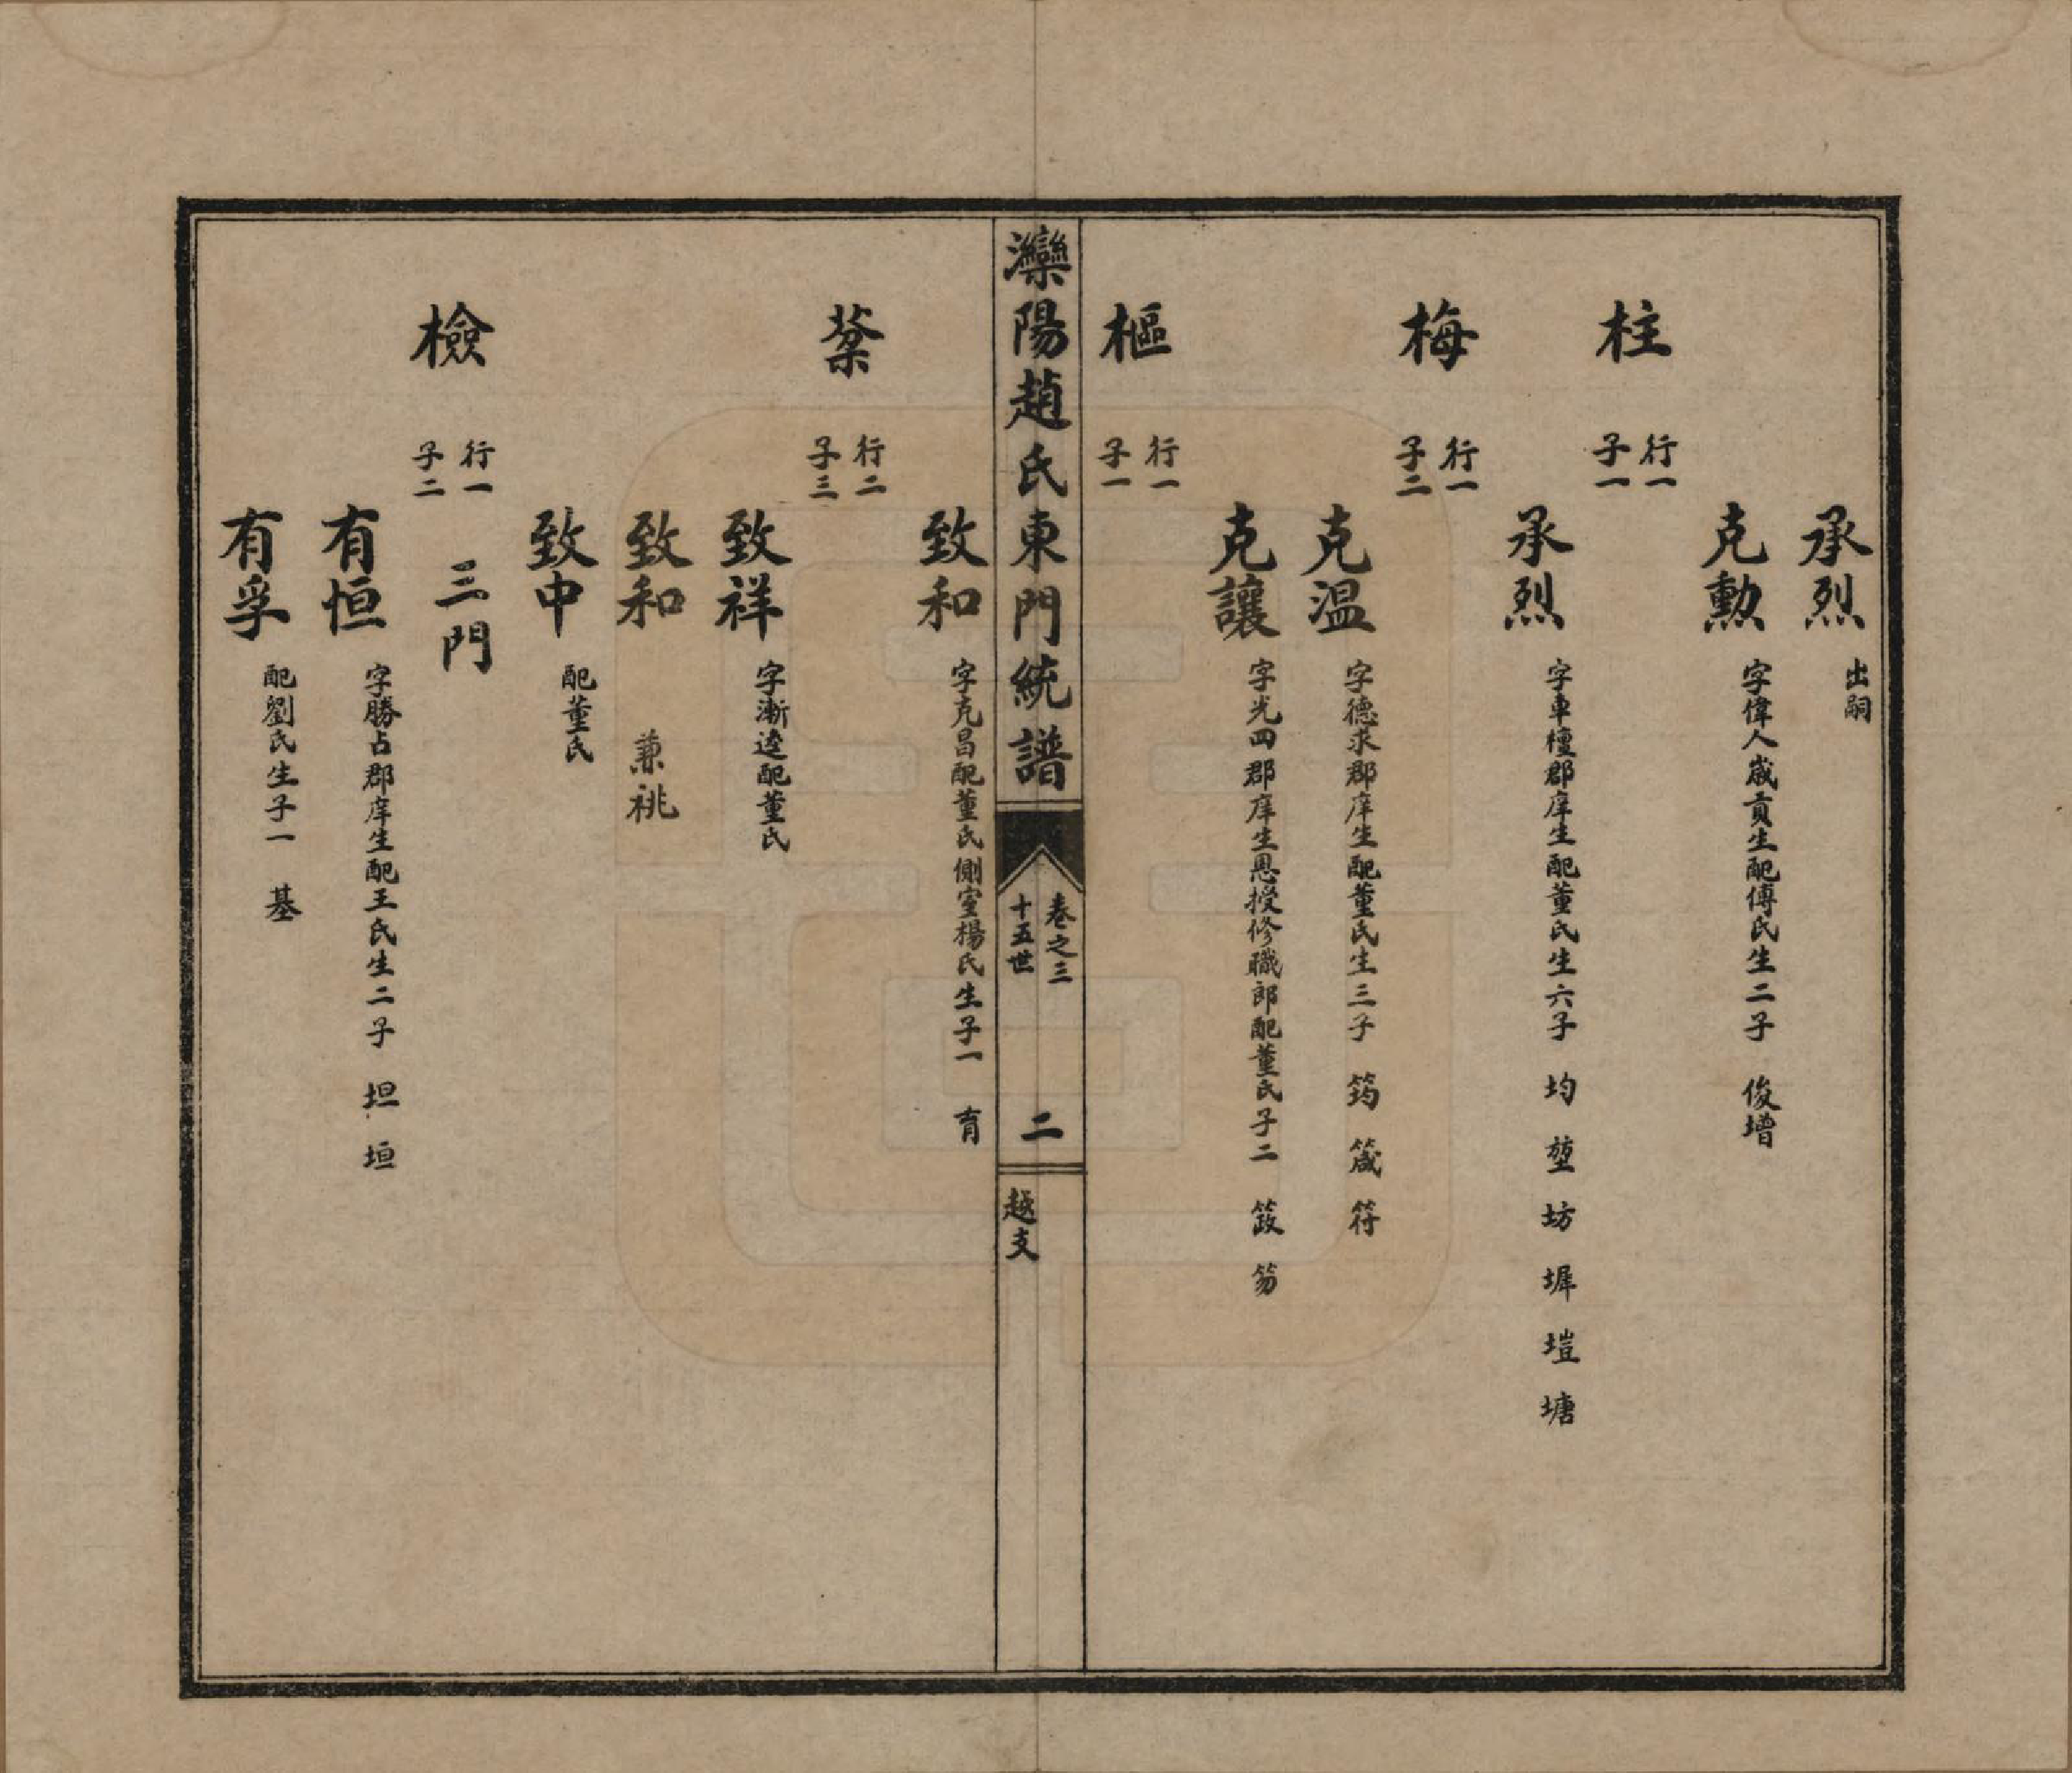 承烈 出嗣
克勳 字偉人歲貢生配傅氏生二子 俊 增
柱 行一 子一
承烈 字車檀郡庠生配董氏生六子 均 堃 坊 墀 塏 塘
梅 行一 子二
克溫 字德求郡庠生配董氏生三子 筠 箴 符
克讓 字光四郡庠生恩授修職郎配董氏子二 笯 笏
樞 行一 子一
灤陽趙氏東門統譜 卷之三 十五世 二 越支
致和 字克昌配董氏側室楊氏生子一 育
棻 行二 子三
致祥 字漸逵配董氏
致和 兼祧
致中 配董氏
三門
檢 行一 子二
有恒 字勝占郡庠生配王氏生二子 坦 垣
有孚 配劉氏生子一 基